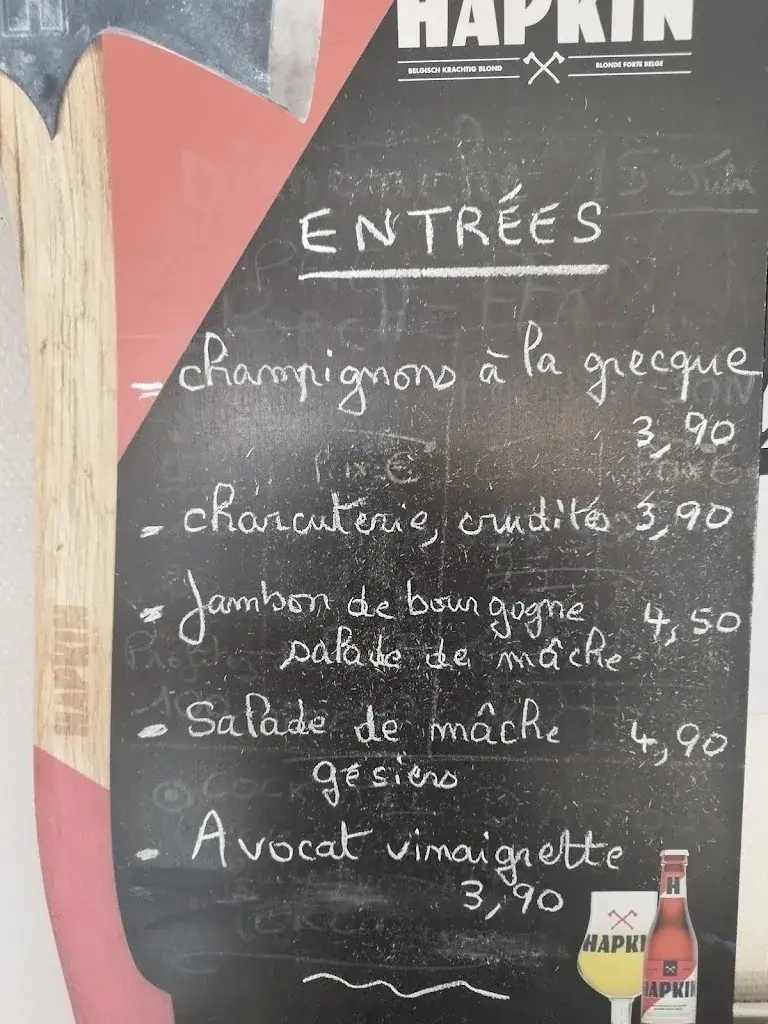 HAPKIN
BELGISCH KRACHTIG BLOND BLONDE FORTE BELGE
15 Juin
ENTRÉES
- champignons à la grecque
3,90
- charcuterie, crudités 3,90
- Jambon de bourgogne 4,50
salade de mâche
- Salade de mâche 4,90
gésiers
- Avocat vinaigrette
3,90
HAPKIN
H
HAPKIN
HAPKIN